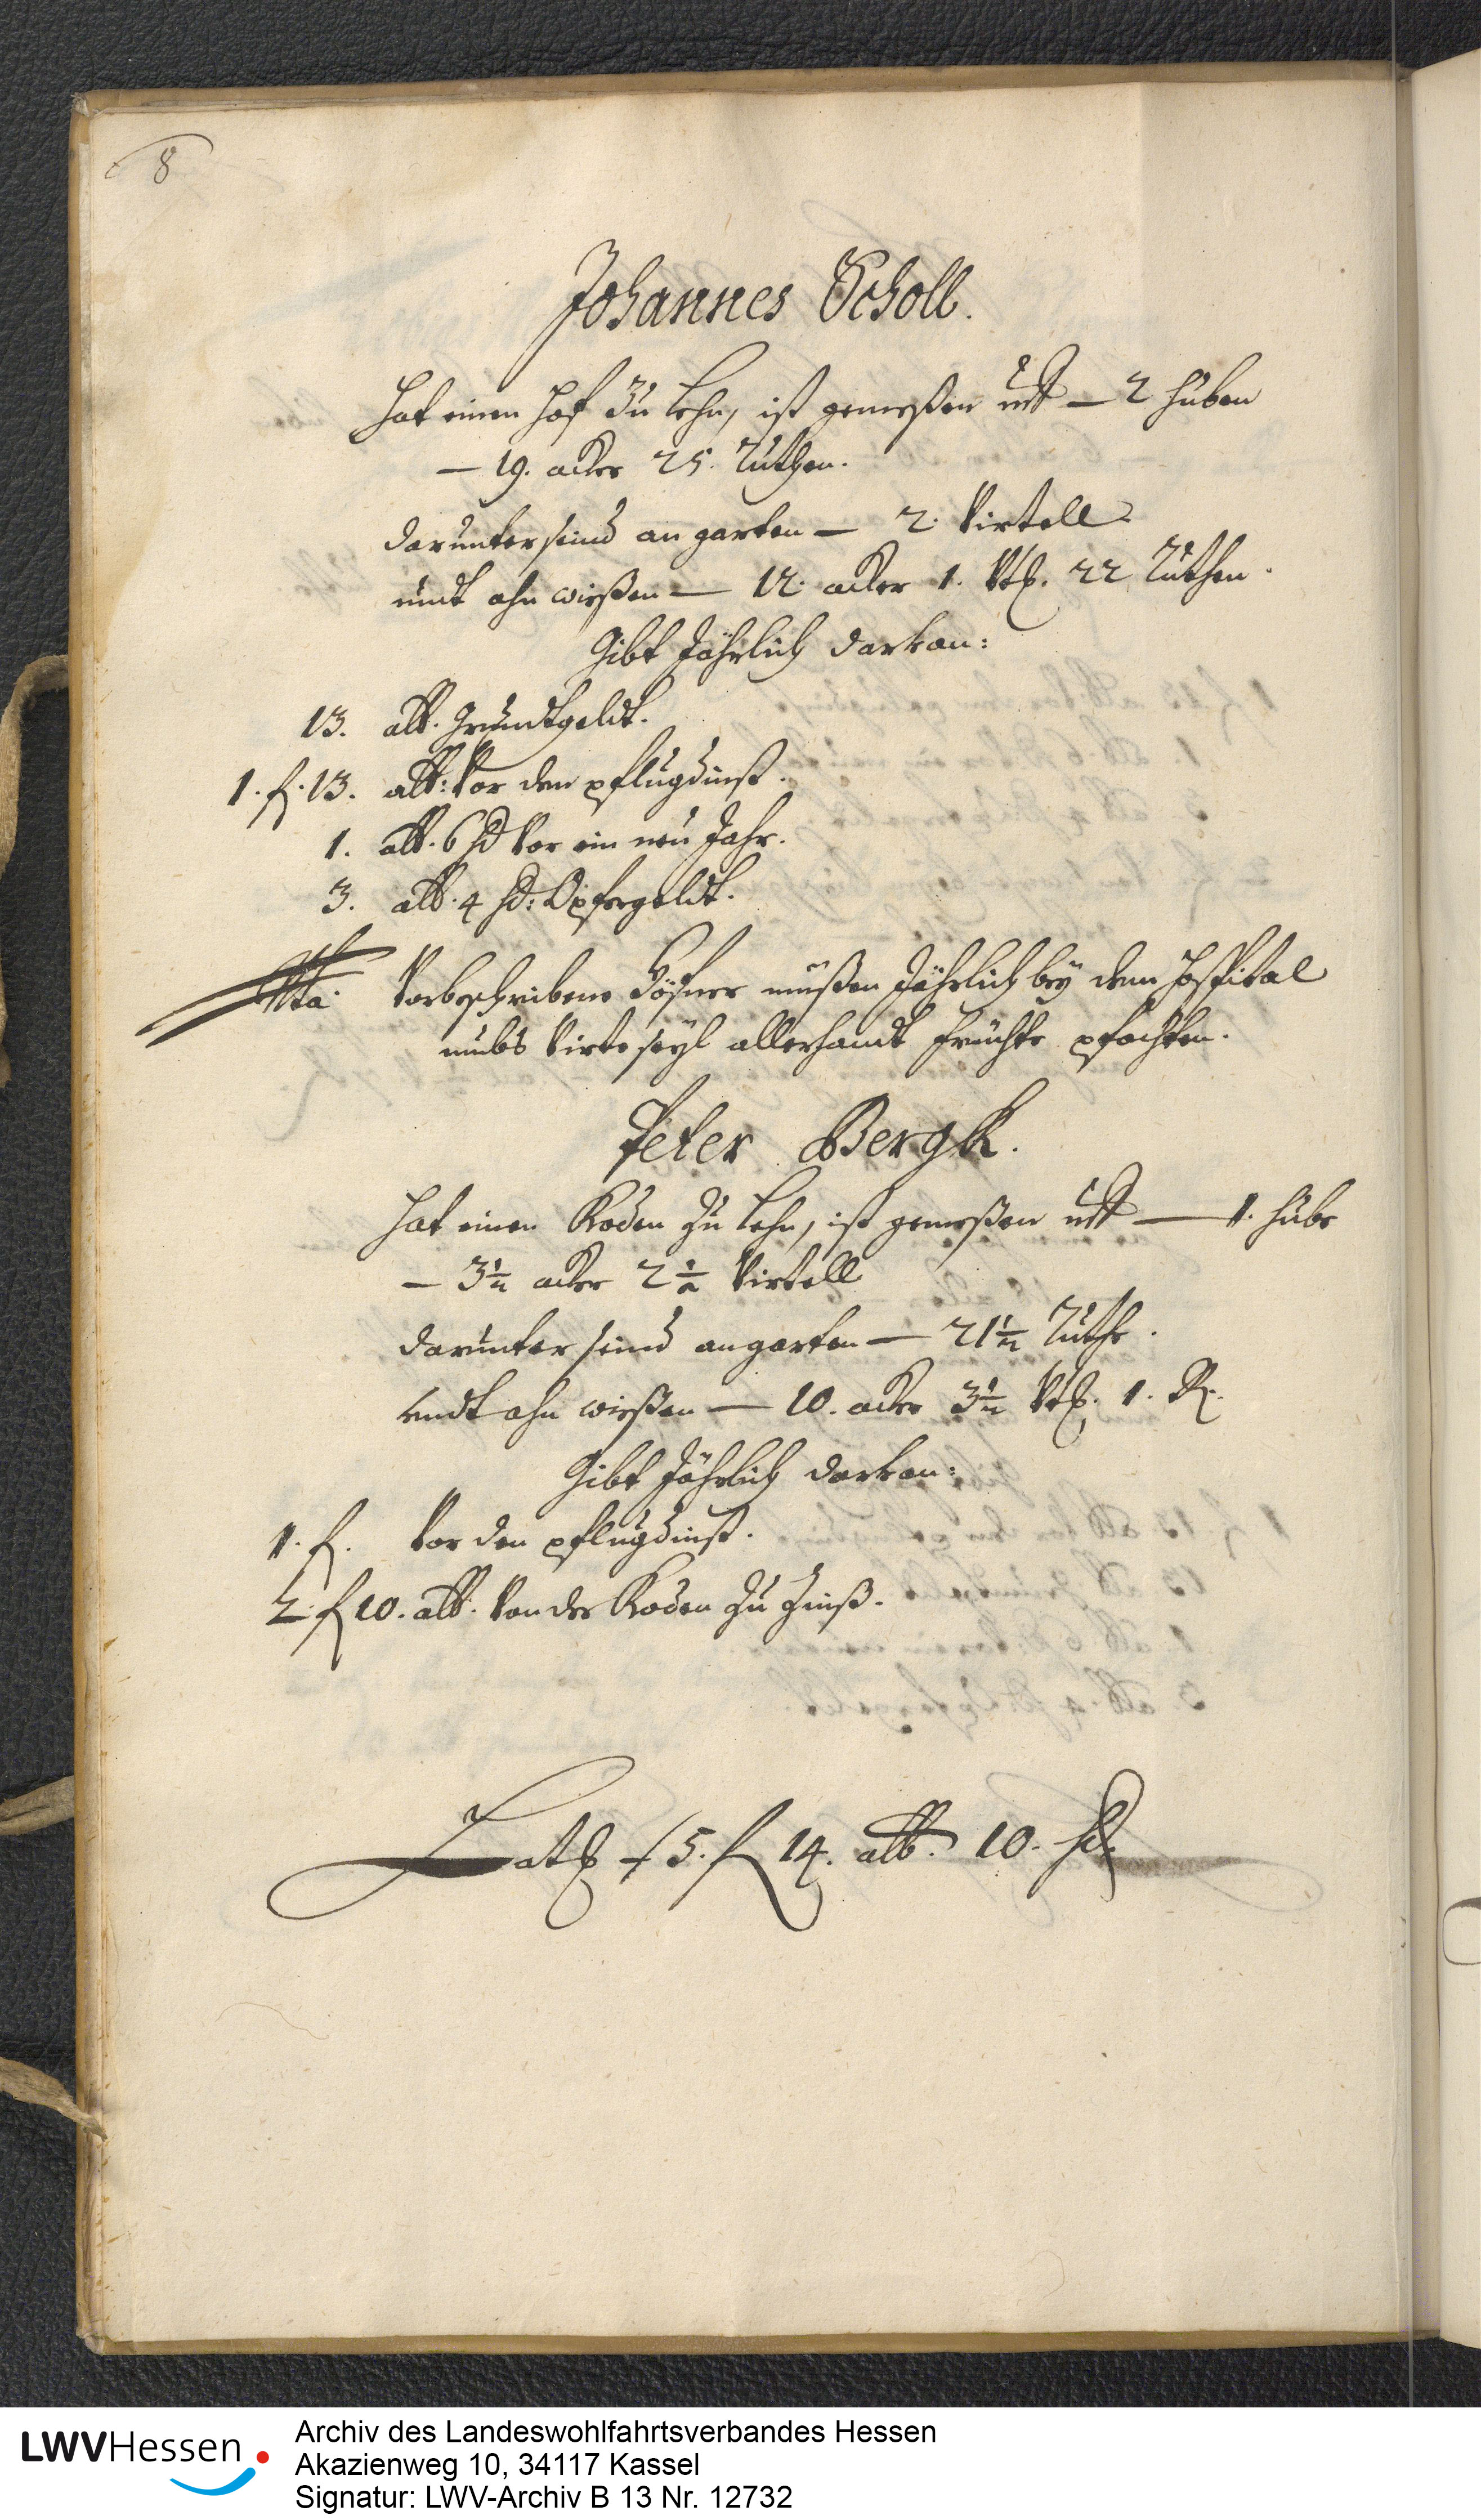 8
Johannes Scholl.
Hat einen Hof zu Lehn, ist gemeßen uff — 2 huben
— 19. acker 25. Ruthen.
darunter seind an garten — 2. Virtell
undt ahn wießen — 12. acker 1. Vtl. 22 Ruthen.
Gibt Jährlich darvan:
13. alb. Grundtgeldt.
1. f. 13. alb: Vor den pflugdinst.
1. alb. 6 hl Vor ein neu Jahr.
3. alb. 4 hl: Opfergeldt.
Nta. Vorbeschribene müßen Jährlich bey dem Hospital
allerhandt früchte
Peter Bergk.
Hat einen Koden zu Lehn, ist gemeßen uff — 1. hube
— 3½ acker 2½ Virtell
darunter seind an garten — 21½ Ruthe.
undt ahn wießen — 10. acker 3½ Vtl. 1. R.
Gibt Jährlich darvan:
1. f. Vor den pflugdinst.
2. f 10. alb. Von der Koden zu Zinß.
Lat. 5. f 14. alb. 10. hl.
LWVHessen
Archiv des Landeswohlfahrtsverbandes Hessen
Akazienweg 10, 34117 Kassel
Signatur: LWV-Archiv B 13 Nr. 12732